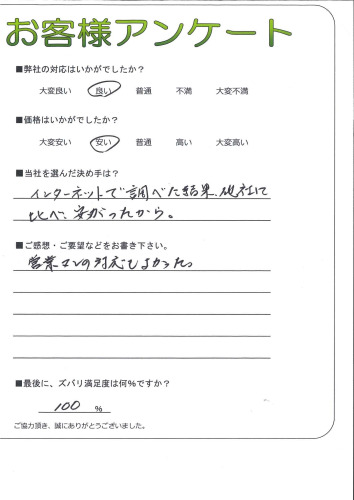 お客様アンケート
■弊社の対応はいかがでしたか？
大変良い 良い 普通 不満 大変不満
■価格はいかがでしたか？
大変安い 安い 普通 高い 大変高い
■当社を選んだ決め手は？
インターネットで調べた結果、他社に
比べ、安かったから。
■ご感想・ご要望などをお書き下さい。
営業マンの対応もよかった。
■最後に、ズバリ満足度は何％ですか？
100 ％
ご協力頂き、誠にありがとうございました。